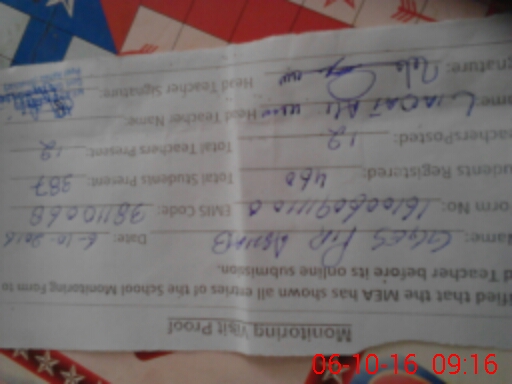 Monitoring Visit Proof
ified that the MEA has shown all entries of the School Monitoring Form to
d Teacher before its online submission.
Name: GGES PIR Date: 6-10-2016
orm No: EMIS Code: 38110068
udents Registered: 460 Total Students Present: 387
eachersPosted: 12 Total Teachers Present: 12
ame: LIAQAT ALI Head Teacher Name:
gnature: Head Teacher Signature:
06-10-16 09:16